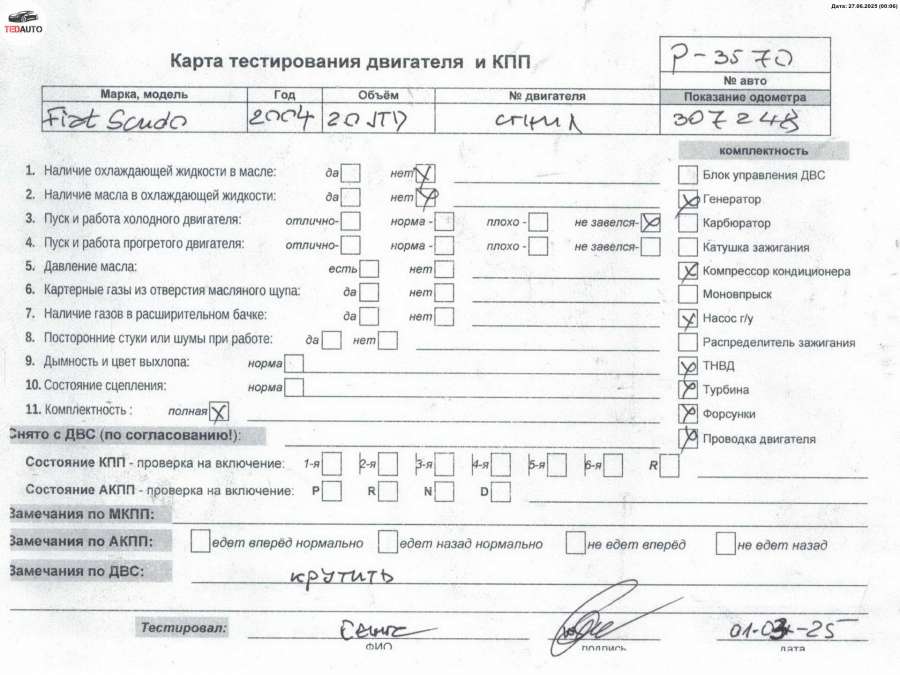 Дата: 27.06.2025 (00:06)
TEDAUTO
Карта тестирования двигателя и КПП
P-3570
№ авто
Марка, модель Год Объём № двигателя Показание одометра
Fiat Scudo 2004 2.0 JTD сгнил 307248
комплектность
1. Наличие охлаждающей жидкости в масле: да нет
Блок управления ДВС
2. Наличие масла в охлаждающей жидкости: да нет
Генератор
3. Пуск и работа холодного двигателя: отлично- норма - плохо - не завелся-
Карбюратор
4. Пуск и работа прогретого двигателя: отлично- норма - плохо - не завелся-
Катушка зажигания
5. Давление масла: есть нет
Компрессор кондиционера
6. Картерные газы из отверстия масляного щупа: да нет
Моновпрыск
7. Наличие газов в расширительном бачке: да нет
Насос г/у
8. Посторонние стуки или шумы при работе: да нет
Распределитель зажигания
9. Дымность и цвет выхлопа: норма
ТНВД
10. Состояние сцепления: норма
Турбина
11. Комплектность : полная
Форсунки
Снято с ДВС (по согласованию!):
Проводка двигателя
Состояние КПП - проверка на включение: 1-я 2-я 3-я 4-я 5-я 6-я R
Состояние АКПП - проверка на включение: P R N D
Замечания по МКПП:
Замечания по АКПП: едет вперёд нормально едет назад нормально не едет вперёд не едет назад
Замечания по ДВС: крутить
Тестировал: 01-03-25
ФИО подпись дата